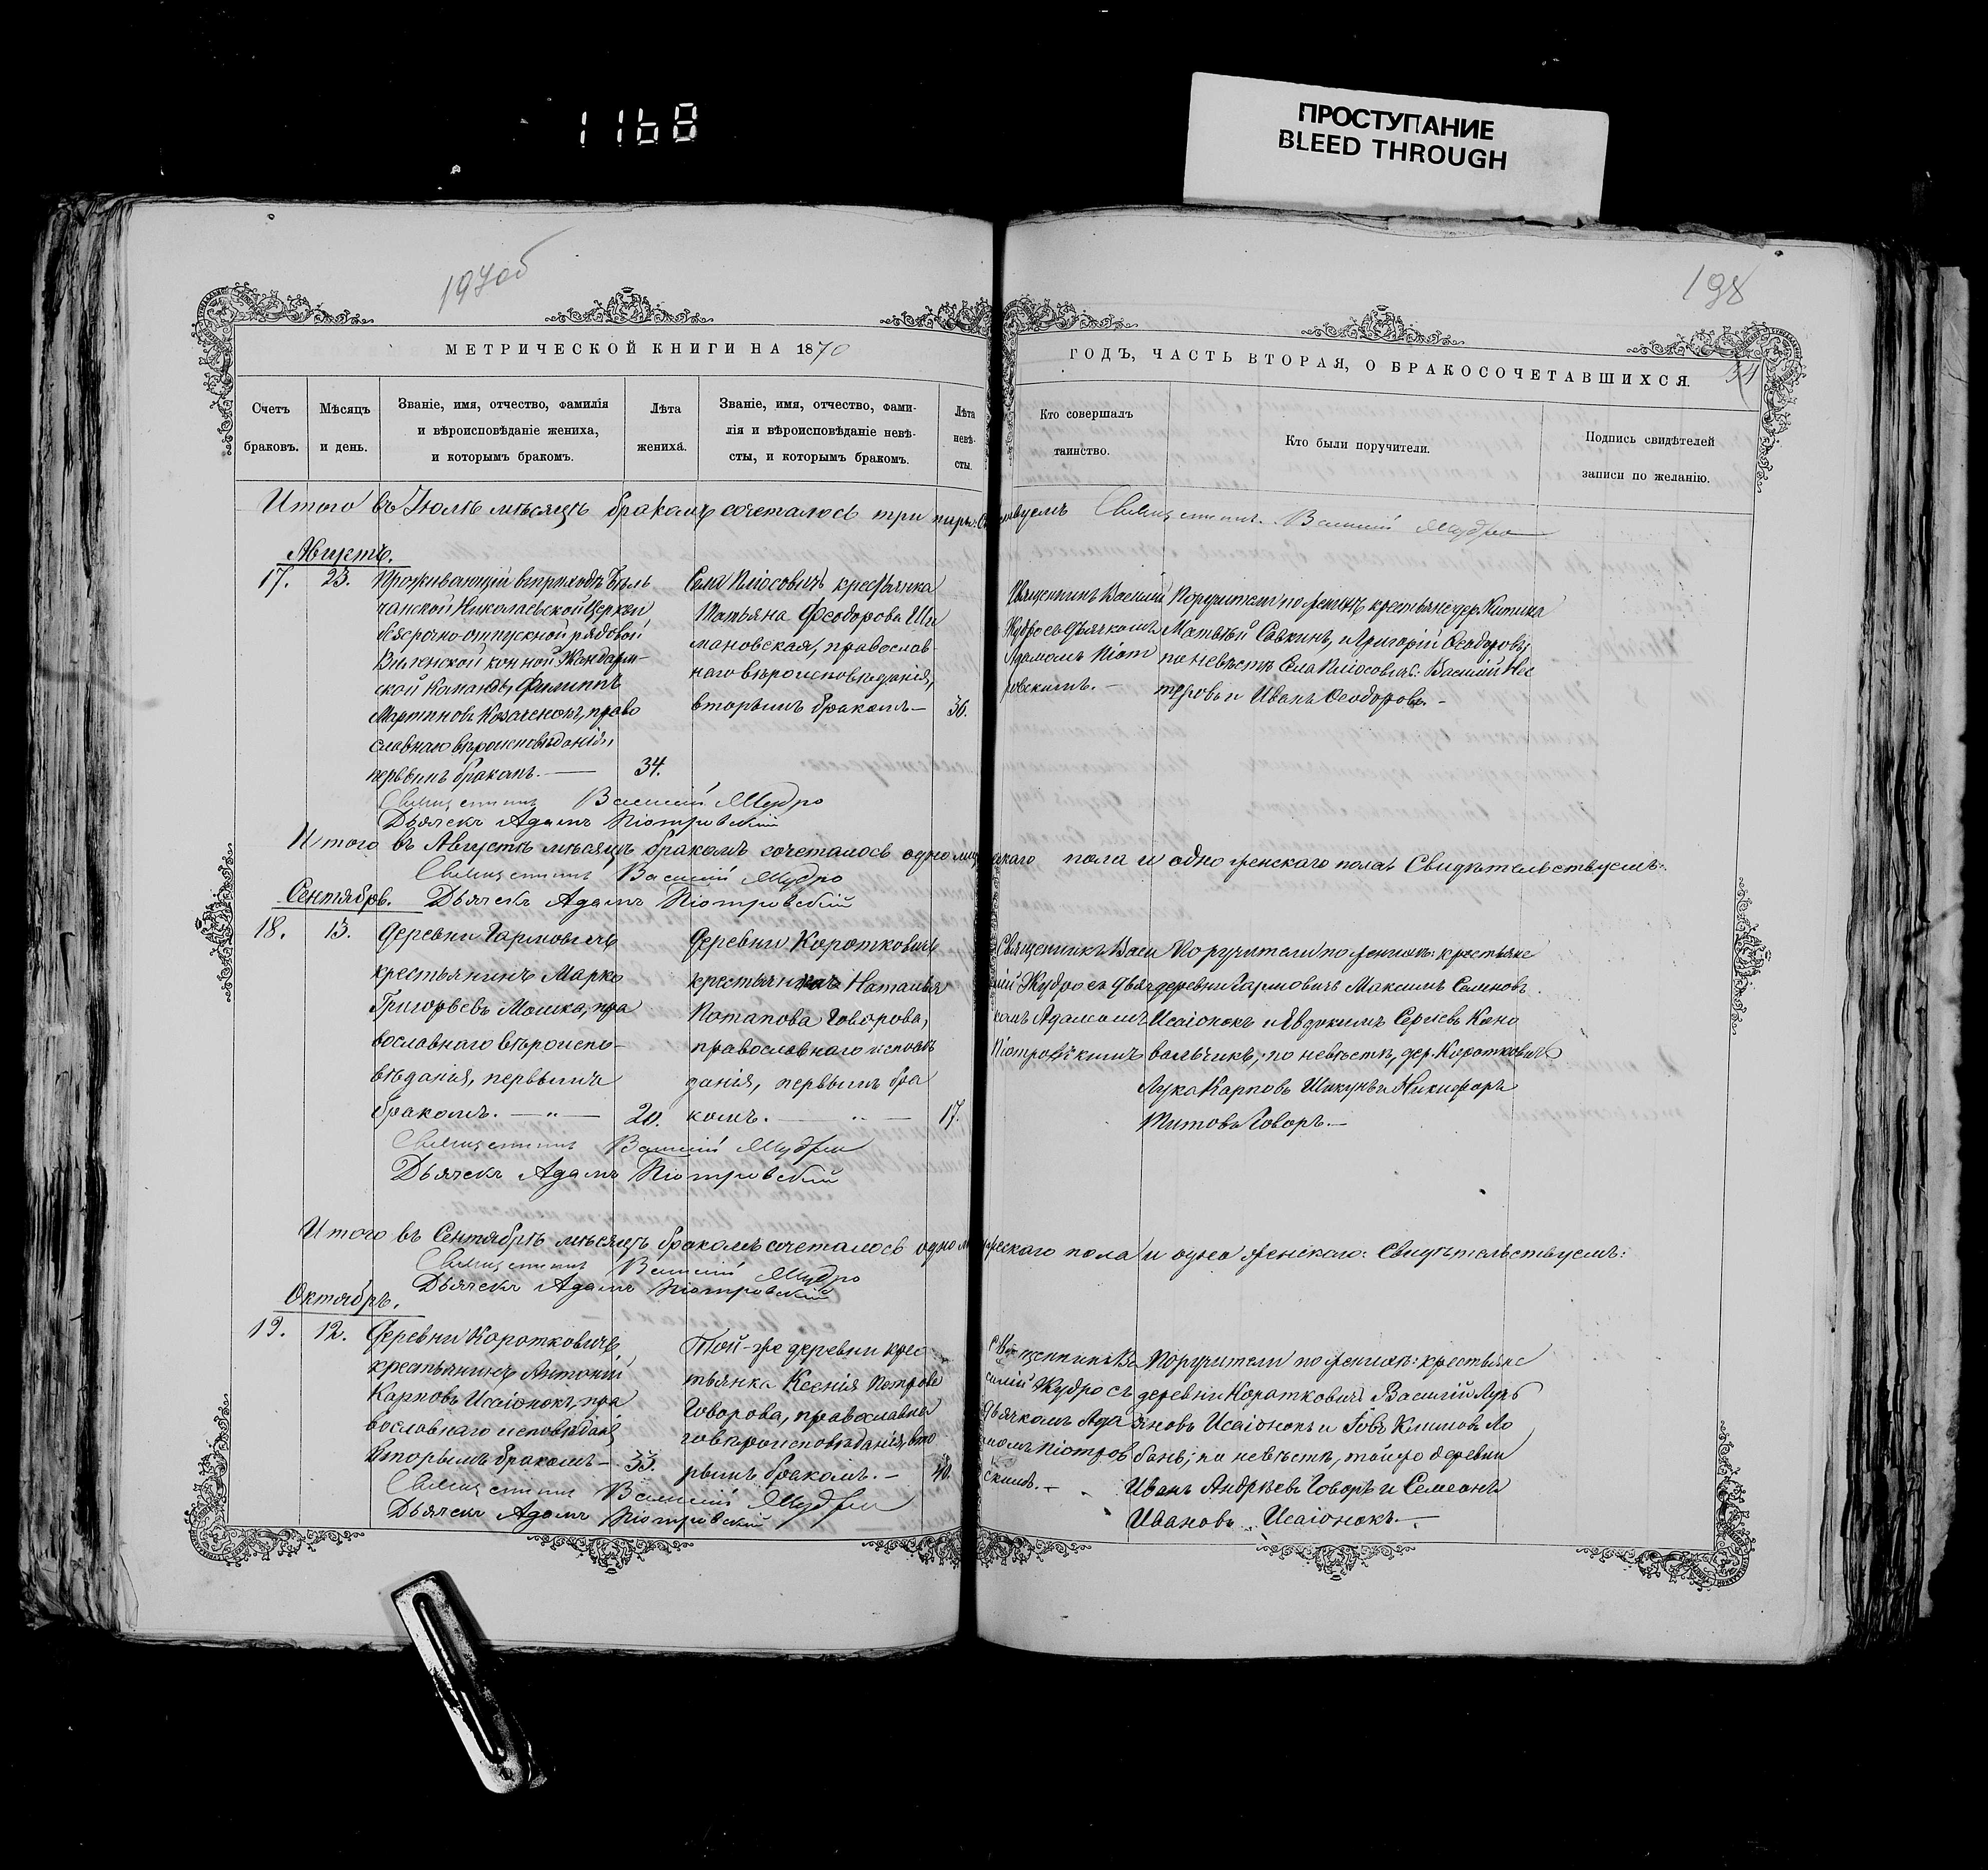 1168
ПРОСТУПАНИЕ
BLEED THROUGH
197об
198
МЕТРИЧЕСКОЙ КНИГИ НА 1870
ГОДЪ, ЧАСТЬ ВТОРАЯ, О БРАКОСОЧЕТАВШИХСЯ.
34
Счетъ
браковъ.
Мѣсяцъ
и день.
Званіе, имя, отчество, фамилія
и вѣроисповѣданіе жениха,
и которымъ бракомъ.
Лѣта
жениха.
Званіе, имя, отчество, фами-
лія и вѣроисповѣданіе невѣ-
сты, и которымъ бракомъ.
Лѣта
невѣ-
сты.
Кто совершалъ
таинство.
Кто были поручители.
Подпись свидѣтелей
записи по желанію.
Итого въ Іюлѣ мѣсяцѣ бракомъ сочеталось три
Священникъ Василій Жудро
Августъ.
17.
23.
Проживающій въ приходѣ Бѣль
чанской Николаевской Церкви
безсрочно-отпускной рядовой
Виленской конной Жандарм-
ской команды Филиппъ
Мартиновъ Козаченокъ, право
славнаго вѣроисповѣданія,
первымъ бракомъ.
34.
Села Пліосовичъ крестьянка
Татьяна Феодорова Ши
мановская, православ-
наго вѣроисповѣданія,
вторымъ бракомъ
36.
Священникъ Василій
Жудро съ дьячкомъ
Адамомъ Піот
ровскимъ.
Поручители по женихѣ крестьяне дер.
Матвѣй Савкинъ, и Григорій Феодоровъ;
по невѣстѣ Села Пліосовичъ: Василій Нес
теровъ и Иванъ Феодоровъ.
Священникъ Василій Жудро
Дьячекъ Адамъ Піотровскій
Итого въ Августѣ мѣсяцѣ бракомъ сочеталось одно мужескаго пола и одно женскаго пола. Свидѣтельствуемъ:
Священникъ Василій Жудро
Дьячекъ Адамъ Піотровскій
Сентябрь.
18.
13.
Деревни Гармовичъ
крестьянинъ Марко
Григорьевъ Мошка, пра
вославнаго вѣроиспо-
вѣданія, первымъ
бракомъ.
20.
Деревни Короткович
крестьянка Наталья
Потапова Говорова,
православнаго исповѣ
данія, первымъ бра
комъ.
17.
Священникъ Васи
лій Жудро съ дьяч
комъ Адамомъ
Піотровскимъ
Поручители по женихѣ: крестьяне
деревни Гармовичъ Максимъ Семеновъ
Исаіонокъ и Евдокимъ Сергѣевъ Коно
вальчикъ, по невѣстѣ, дер. Коротковичъ
Лука Карповъ Шикунъ и Никифоръ
Титовъ Говоръ.
Священникъ Василій Жудро
Дьячекъ Адамъ Піотровскій
Итого въ Сентябрѣ мѣсяцѣ бракомъ сочеталось одно мужескаго пола и одно женскаго: Свидѣтельствуемъ:
Священникъ Василій Жудро
Дьячекъ Адамъ Піотровскій
Октябрь.
19.
12.
Деревни Коротковичъ
крестьянинъ Антоній
Карповъ Исаіонокъ, пра
вославнаго исповѣданія,
вторымъ бракомъ
35.
Той-же деревни крес
тьянка Ксенія Петрова
Говорова, православна
го вѣроисповѣданія, вто
рымъ бракомъ.
40.
Священникъ Ва
силій Жудро съ
дьячкомъ Ада
момъ Піотров
скимъ.
Поручители по женихѣ: крестьяне
деревни Коротковичъ Василій Лукь
яновъ Исаіонокъ и Іовъ Климовъ Ло
бань; по невѣстѣ, той же деревни
Иванъ Андрѣевъ Говоръ и Семеонъ
Ивановъ Исаіонокъ.
Священникъ Василій Жудро
Дьячекъ Адамъ Піотровскій